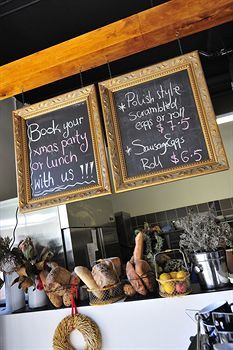 Book your
xmas party
or lunch
with us !!!
* Polish style
scrambled
eggs or roll
$ 7.5
* Sausage Eggs
Roll $ 6.5